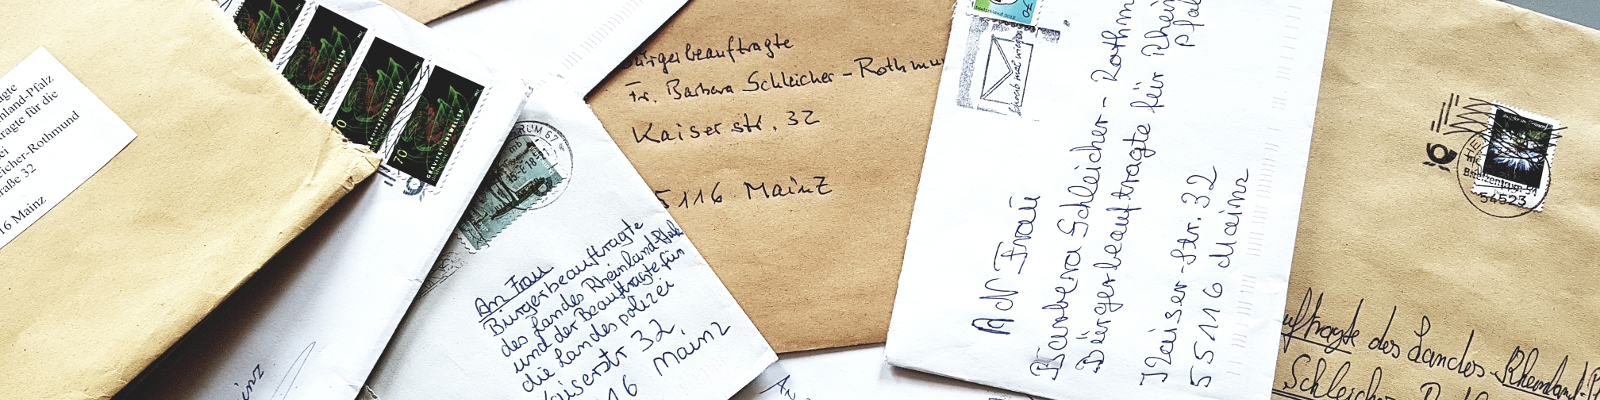 agte
nland-Pfalz
rtragte für die
ei
eicher-Rothmund
raße 32
16 Mainz
GRAVITATIONSWELLEN
GRAVITATIONSWELLEN
GRAVITATIONSWELLEN
GRAVITATIONSWELLEN
70
inz
An Frau
Bürgerbeauftragte
des Landes Rheinland-Pfalz
und der Beauftragte für
die Landespolizei
Kaiserstr 32,
16 Mainz
ürgerbeauftragte
Fr. Barbara Schleicher-Rothmun
Kaiserstr. 32
55116 Mainz
Deutschland
Schreib mal wieder
AN Frau
Barbara Schleicher-Rothm
Bürgerbeauftragte für Rhein
Pfal
Kaiser-Str. 32
55116 Mainz
Briefzentrum 54
54523
uftragte des Landes Rheinland-P
Schleicher